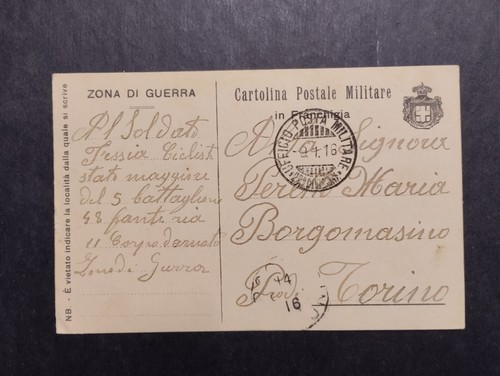 NB. - È vietato indicare la località dalla quale si scrive
ZONA DI GUERRA
Al Soldato
Tessia Ciclist
stato maggiore
del 5 battaglione
48 fanteria
11 Corpo darmata
Zona di Guerra
Cartolina Postale Militare
in Franchigia
UFFICIO POSTA MILITARE
-9.1.16
Alla Signora
Maria
Borgomasino
Prov. Torino
16